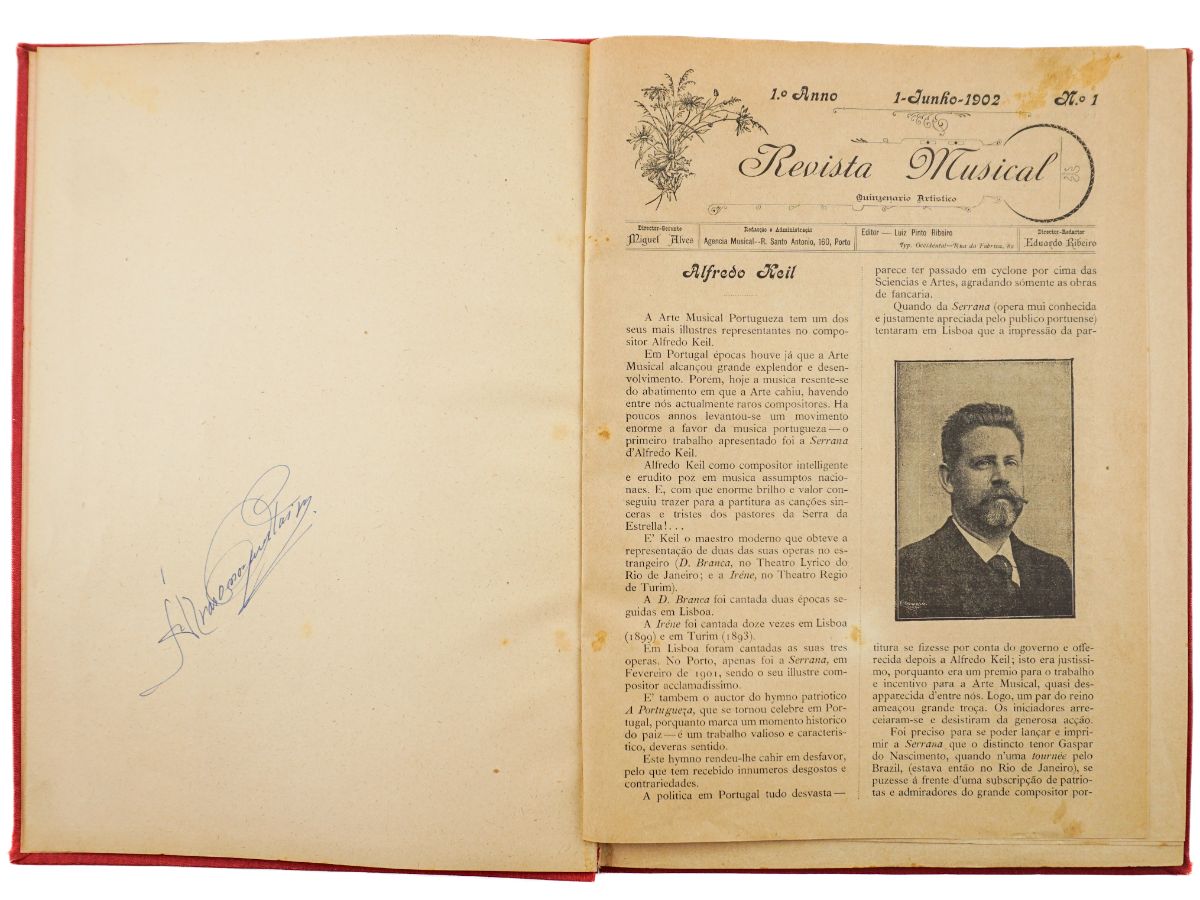 1.º Anno 1-Junho-1902 N.º 1
Revista Musical
Quinzenario Artistico
Director-Gerente
Miguel Alves
Redacção e Administração
Agencia Musical--R. Santo Antonio, 160, Porto
Editor — Luiz Pinto Ribeiro
Typ. Occidental—Rua da Fabrica, 80
Director-Redactor
Eduardo Ribeiro
Alfredo Keil
A Arte Musical Portugueza tem um dos
seus mais illustres representantes no compo-
sitor Alfredo Keil.
Em Portugal épocas houve já que a Arte
Musical alcançou grande explendor e desen-
volvimento. Porém, hoje a musica resente-se
do abatimento em que a Arte cahiu, havendo
entre nós actualmente raros compositores. Ha
poucos annos levantou-se um movimento
enorme a favor da musica portugueza—o
primeiro trabalho apresentado foi a Serrana
d'Alfredo Keil.
Alfredo Keil como compositor intelligente
e erudito poz em musica assumptos nacio-
naes. E, com que enorme brilho e valor con-
seguiu trazer para a partitura as canções sin-
ceras e tristes dos pastores da Serra da
Estrella!...
E' Keil o maestro moderno que obteve a
representação de duas das suas operas no es-
trangeiro (D. Branca, no Theatro Lyrico do
Rio de Janeiro; e a Iréne, no Theatro Regio
de Turim).
A D. Branca foi cantada duas épocas se-
guidas em Lisboa.
A Iréne foi cantada doze vezes em Lisboa
(1899) e em Turim (1893).
Em Lisboa foram cantadas as suas tres
operas. No Porto, apenas foi a Serrana, em
Fevereiro de 1901, sendo o seu illustre com-
positor acclamadissimo.
E' tambem o auctor do hymno patriotico
A Portugueza, que se tornou celebre em Por-
tugal, porquanto marca um momento historico
do paiz—é um trabalho valioso e caracteris-
tico, deveras sentido.
Este hymno rendeu-lhe cahir em desfavor,
pelo que tem recebido innumeros desgostos e
contrariedades.
A politica em Portugal tudo desvasta—
parece ter passado em cyclone por cima das
Sciencias e Artes, agradando sómente as obras
de fancaria.
Quando da Serrana (opera mui conhecida
e justamente apreciada pelo publico portuense)
tentaram em Lisboa que a impressão da par-
titura se fizesse por conta do governo e offe-
recida depois a Alfredo Keil; isto era justissi-
mo, porquanto era um premio para o trabalho
e incentivo para a Arte Musical, quasi des-
apparecida d'entre nós. Logo, um par do reino
ameaçou grande troça. Os iniciadores arre-
ceiaram-se e desistiram da generosa acção.
Foi preciso para se poder lançar e impri-
mir a Serrana que o distincto tenor Gaspar
do Nascimento, quando n'uma tournée pelo
Brazil, (estava então no Rio de Janeiro), se
puzesse á frente d'uma subscripção de patrio-
tas e admiradores do grande compositor por-